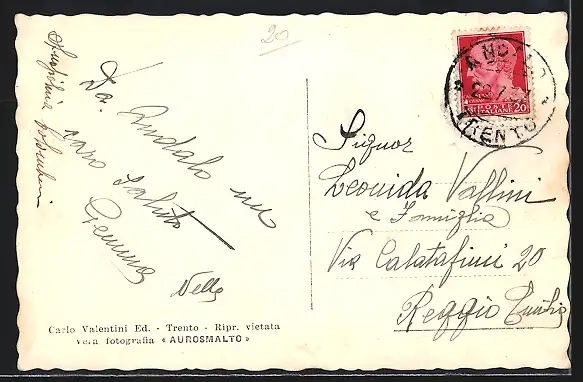 20
Da Andalo un
caro saluto
Gemma
Nella
Carlo Valentini Ed. - Trento - Ripr. vietata
vera fotografia « AUROSMALTO »
ANDALO
TRENTO
POSTE
ITALIANE 20
Signor
Leonida Vallini
e Famiglia
Via Calatafimi 20
Reggio Emilia